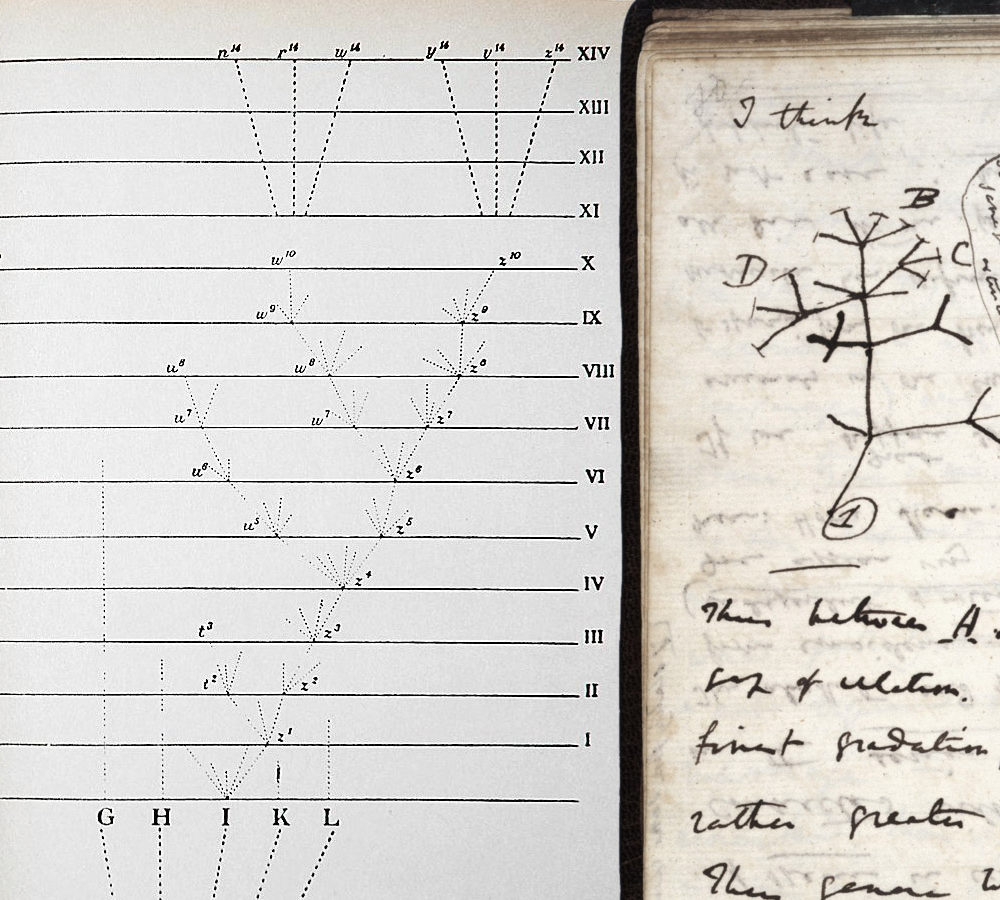 n¹⁴ r¹⁴ w¹⁴ y¹⁴ v¹⁴ z¹⁴ XIV
XIII
XII
XI
w¹⁰ z¹⁰ X
w⁹ z⁹ IX
u⁸ w⁸ z⁸ VIII
u⁷ w⁷ z⁷ VII
u⁶ z⁶ VI
u⁵ z⁵ V
z⁴ IV
t³ z³ III
t² z² II
z¹ I
G H I K L
I think
B
C
D
1
Thus between A
gap of relation.
finest gradation
rather greater
Thus genera